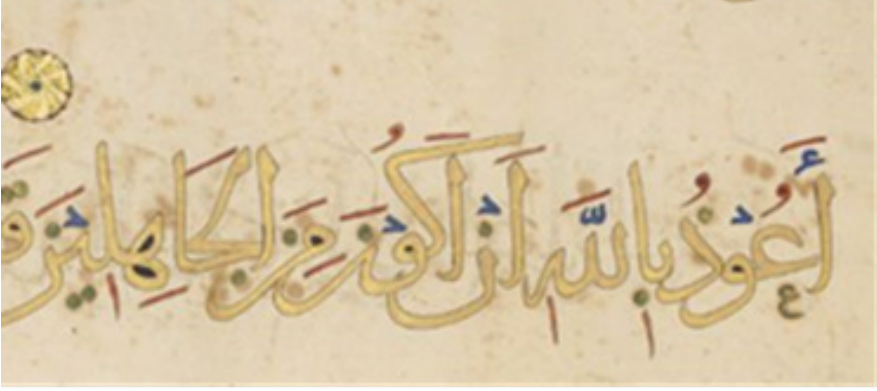 أَعُوْذُ بِاللَّهِ اَنْ اَكُوْنَ مِنَ الْجَاهِلِيْنَ